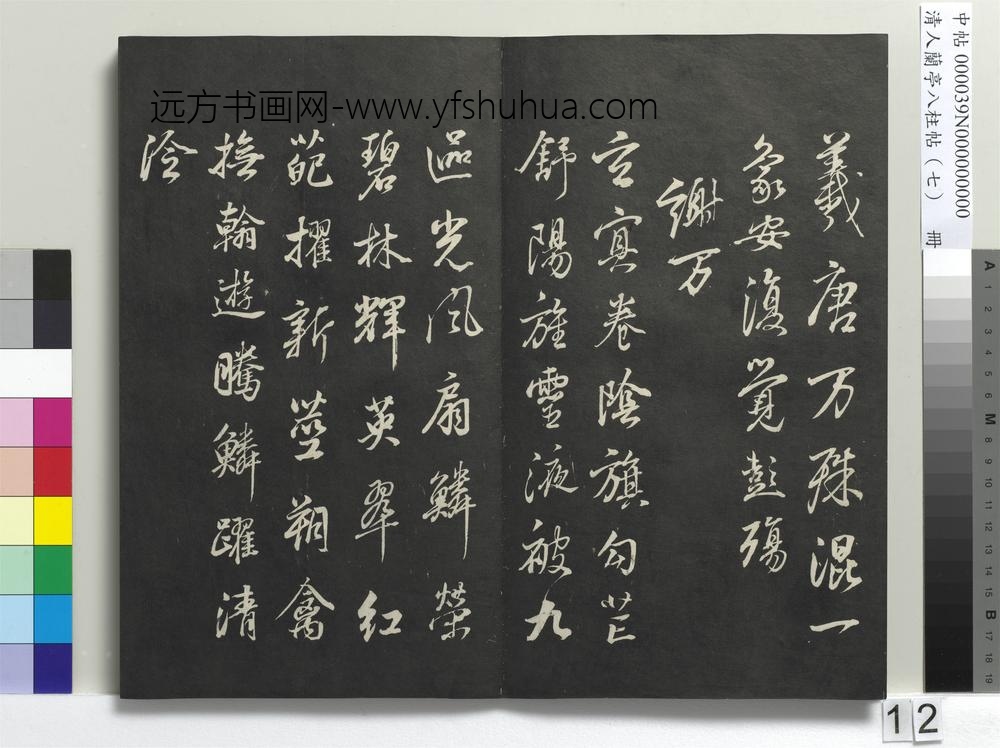 远方书画网-www.yfshuhua.com
中帖 000039N000000000
清人蘭亭八柱帖（七） 冊
羲唐万殊混一
象安復覺彭殤
謝万
玄冥卷陰旗勾芒
舒陽旌靈液被九
區光風扇鱗榮
碧林輝英翠紅
葩擢新莖翔禽
撫翰遊騰鱗躍清
泠
A 1 2 3 4 5 6 M 8 9 10 11 12 13 14 15 B 17 18 19
12